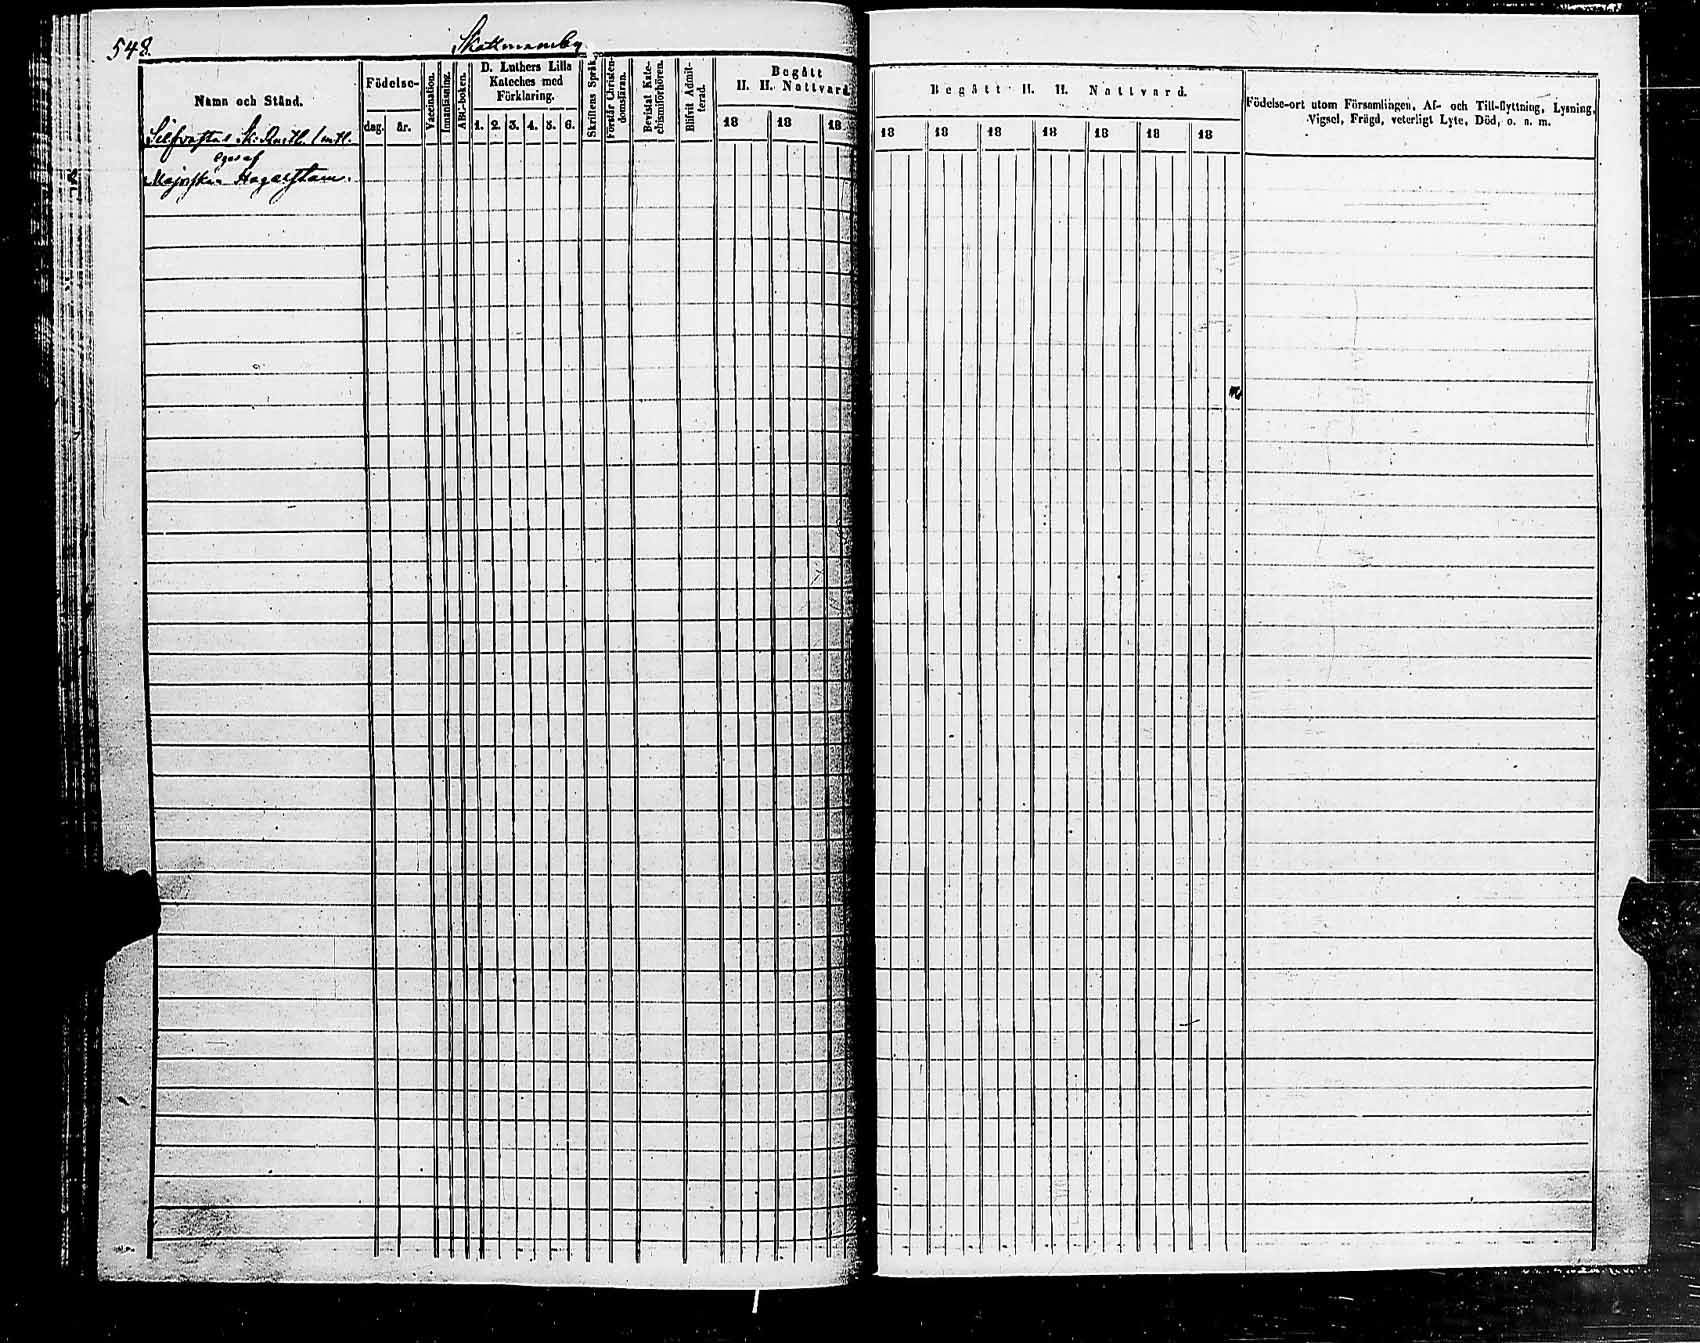 548.
Skottmansby
Namn och Stånd.
Födelse-
dag.
år.
Vaccination.
Innanläsning.
ABC-boken.
D. Luthers Lilla
Kateches med
Förklaring.
1. 2. 3. 4. 5. 6.
Skriftens Språk.
Förstår Christen-
domsläran.
Bevistat Kate-
chismiförhören.
Blifvit Admit-
terad.
Begått
H. H. Nattvard.
18 18 18
Begått H. H. Nattvard.
18 18 18 18 18 18 18
Födelse-ort utom Församlingen, Af- och Till-flyttning, Lysning,
Vigsel, Frägd, veterligt Lyte, Död, o. s. m.
eges af
Majorskan Hagelstam.